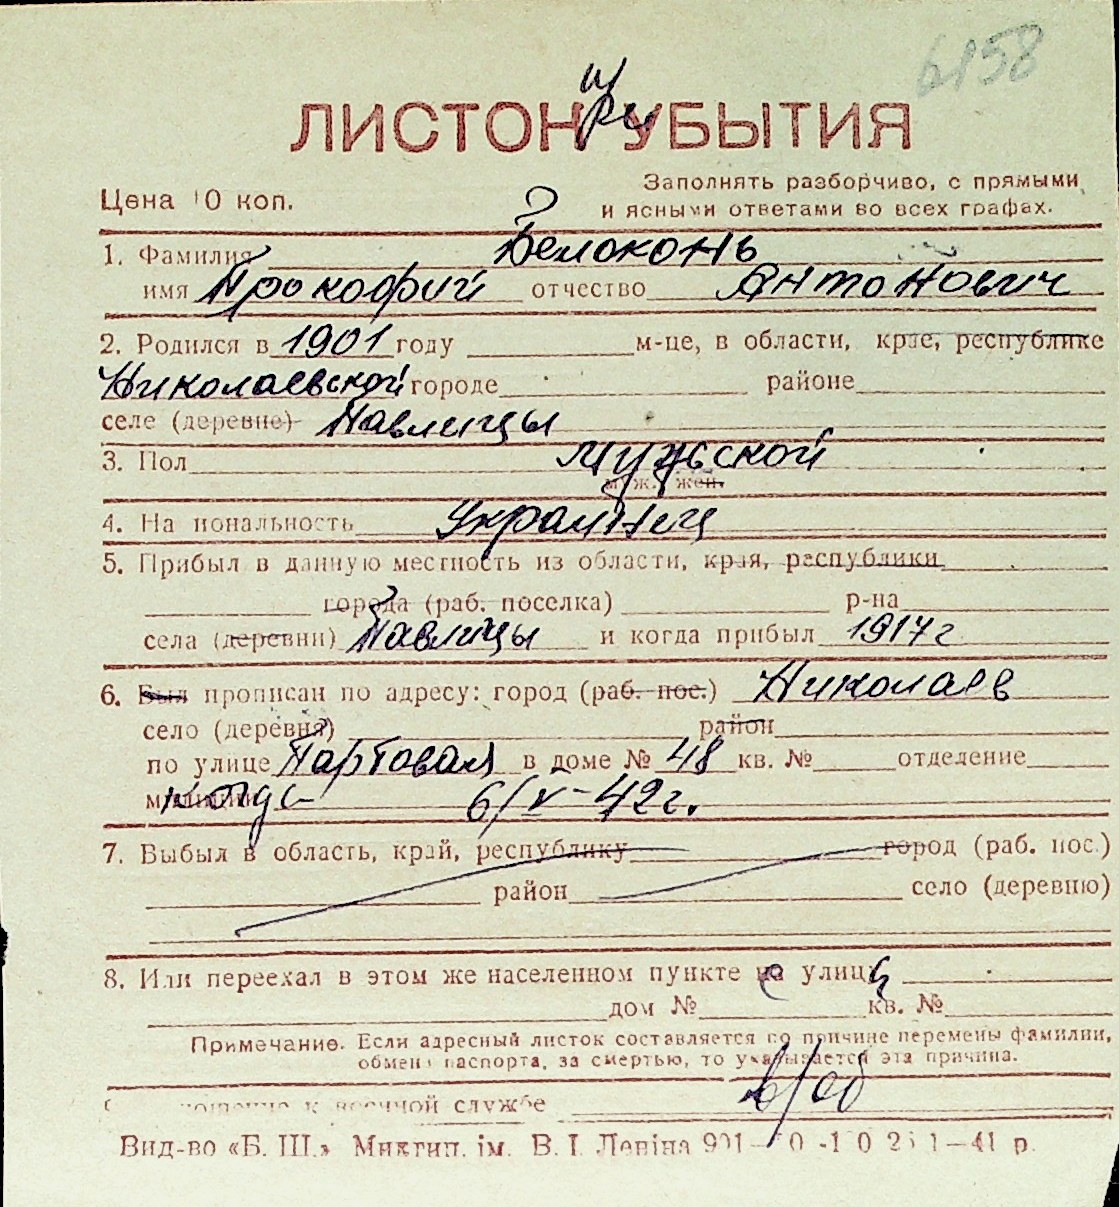 6158
ЛИСТОК при УБЫТИЯ
Цена 10 коп.
Заполнять разборчиво, с прямыми
и ясными ответами во всех графах.
1. Фамилия Белоконь
имя Прокофий отчество Антонович
2. Родился в 1901 году м-це, в области, крае, республике
Николаевской городе районе
селе (деревне) Павлицы
3. Пол мужской
муж. жен.
4. Национальность украинец
5. Прибыл в данную местность из области, края, республики
города (раб. поселка) р-на
села (деревни) Павлицы и когда прибыл 1917 г
6. Был прописан по адресу: город (раб. пос.) Николаев
село (деревня) район
по улице Портовая в доме № 48 кв. № отделение
милиции когда 6/V-42 г.
7. Выбыл в область, край, республику город (раб. пос.)
район село (деревню)
8. Или переехал в этом же населенном пункте с улицы
дом № кв. №
Примечание. Если адресный листок составляется по причине перемены фамилии,
обмена паспорта, за смертью, то указывается эта причина.
к военной службе в/об
Вид-во «Б. Ш.» Микгип. ім. В. І. Леніна 1—41 р.